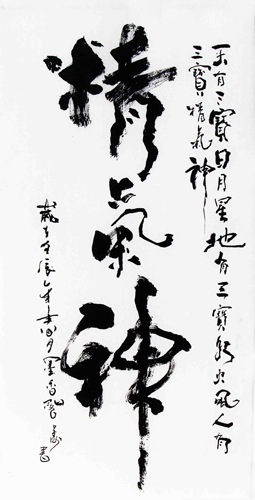 天有三寶日月星地有三寶水火風人有
三寶精氣神
精氣神
歲壬辰年月墨香書